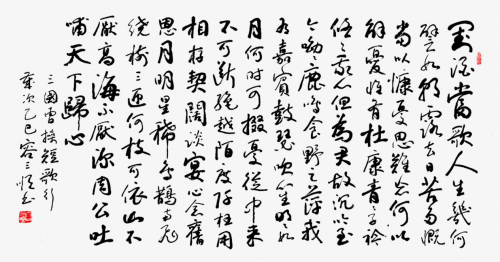 對酒當歌人生幾何
譬如朝露去日苦多慨
當以慷憂思難忘何以
解憂唯有杜康青青子衿
悠悠我心但為君故沉吟至
今呦呦鹿鳴食野之苹我
有嘉賓鼓瑟吹笙明明如
月何時可掇憂從中來
不可斷絕越陌度阡枉用
相存契闊談宴心念舊
恩月明星稀烏鵲南飛
繞樹三匝何枝可依山不
厭高海不厭深周公吐
哺天下歸心
三國曹操短歌行
歲次乙巳容三書